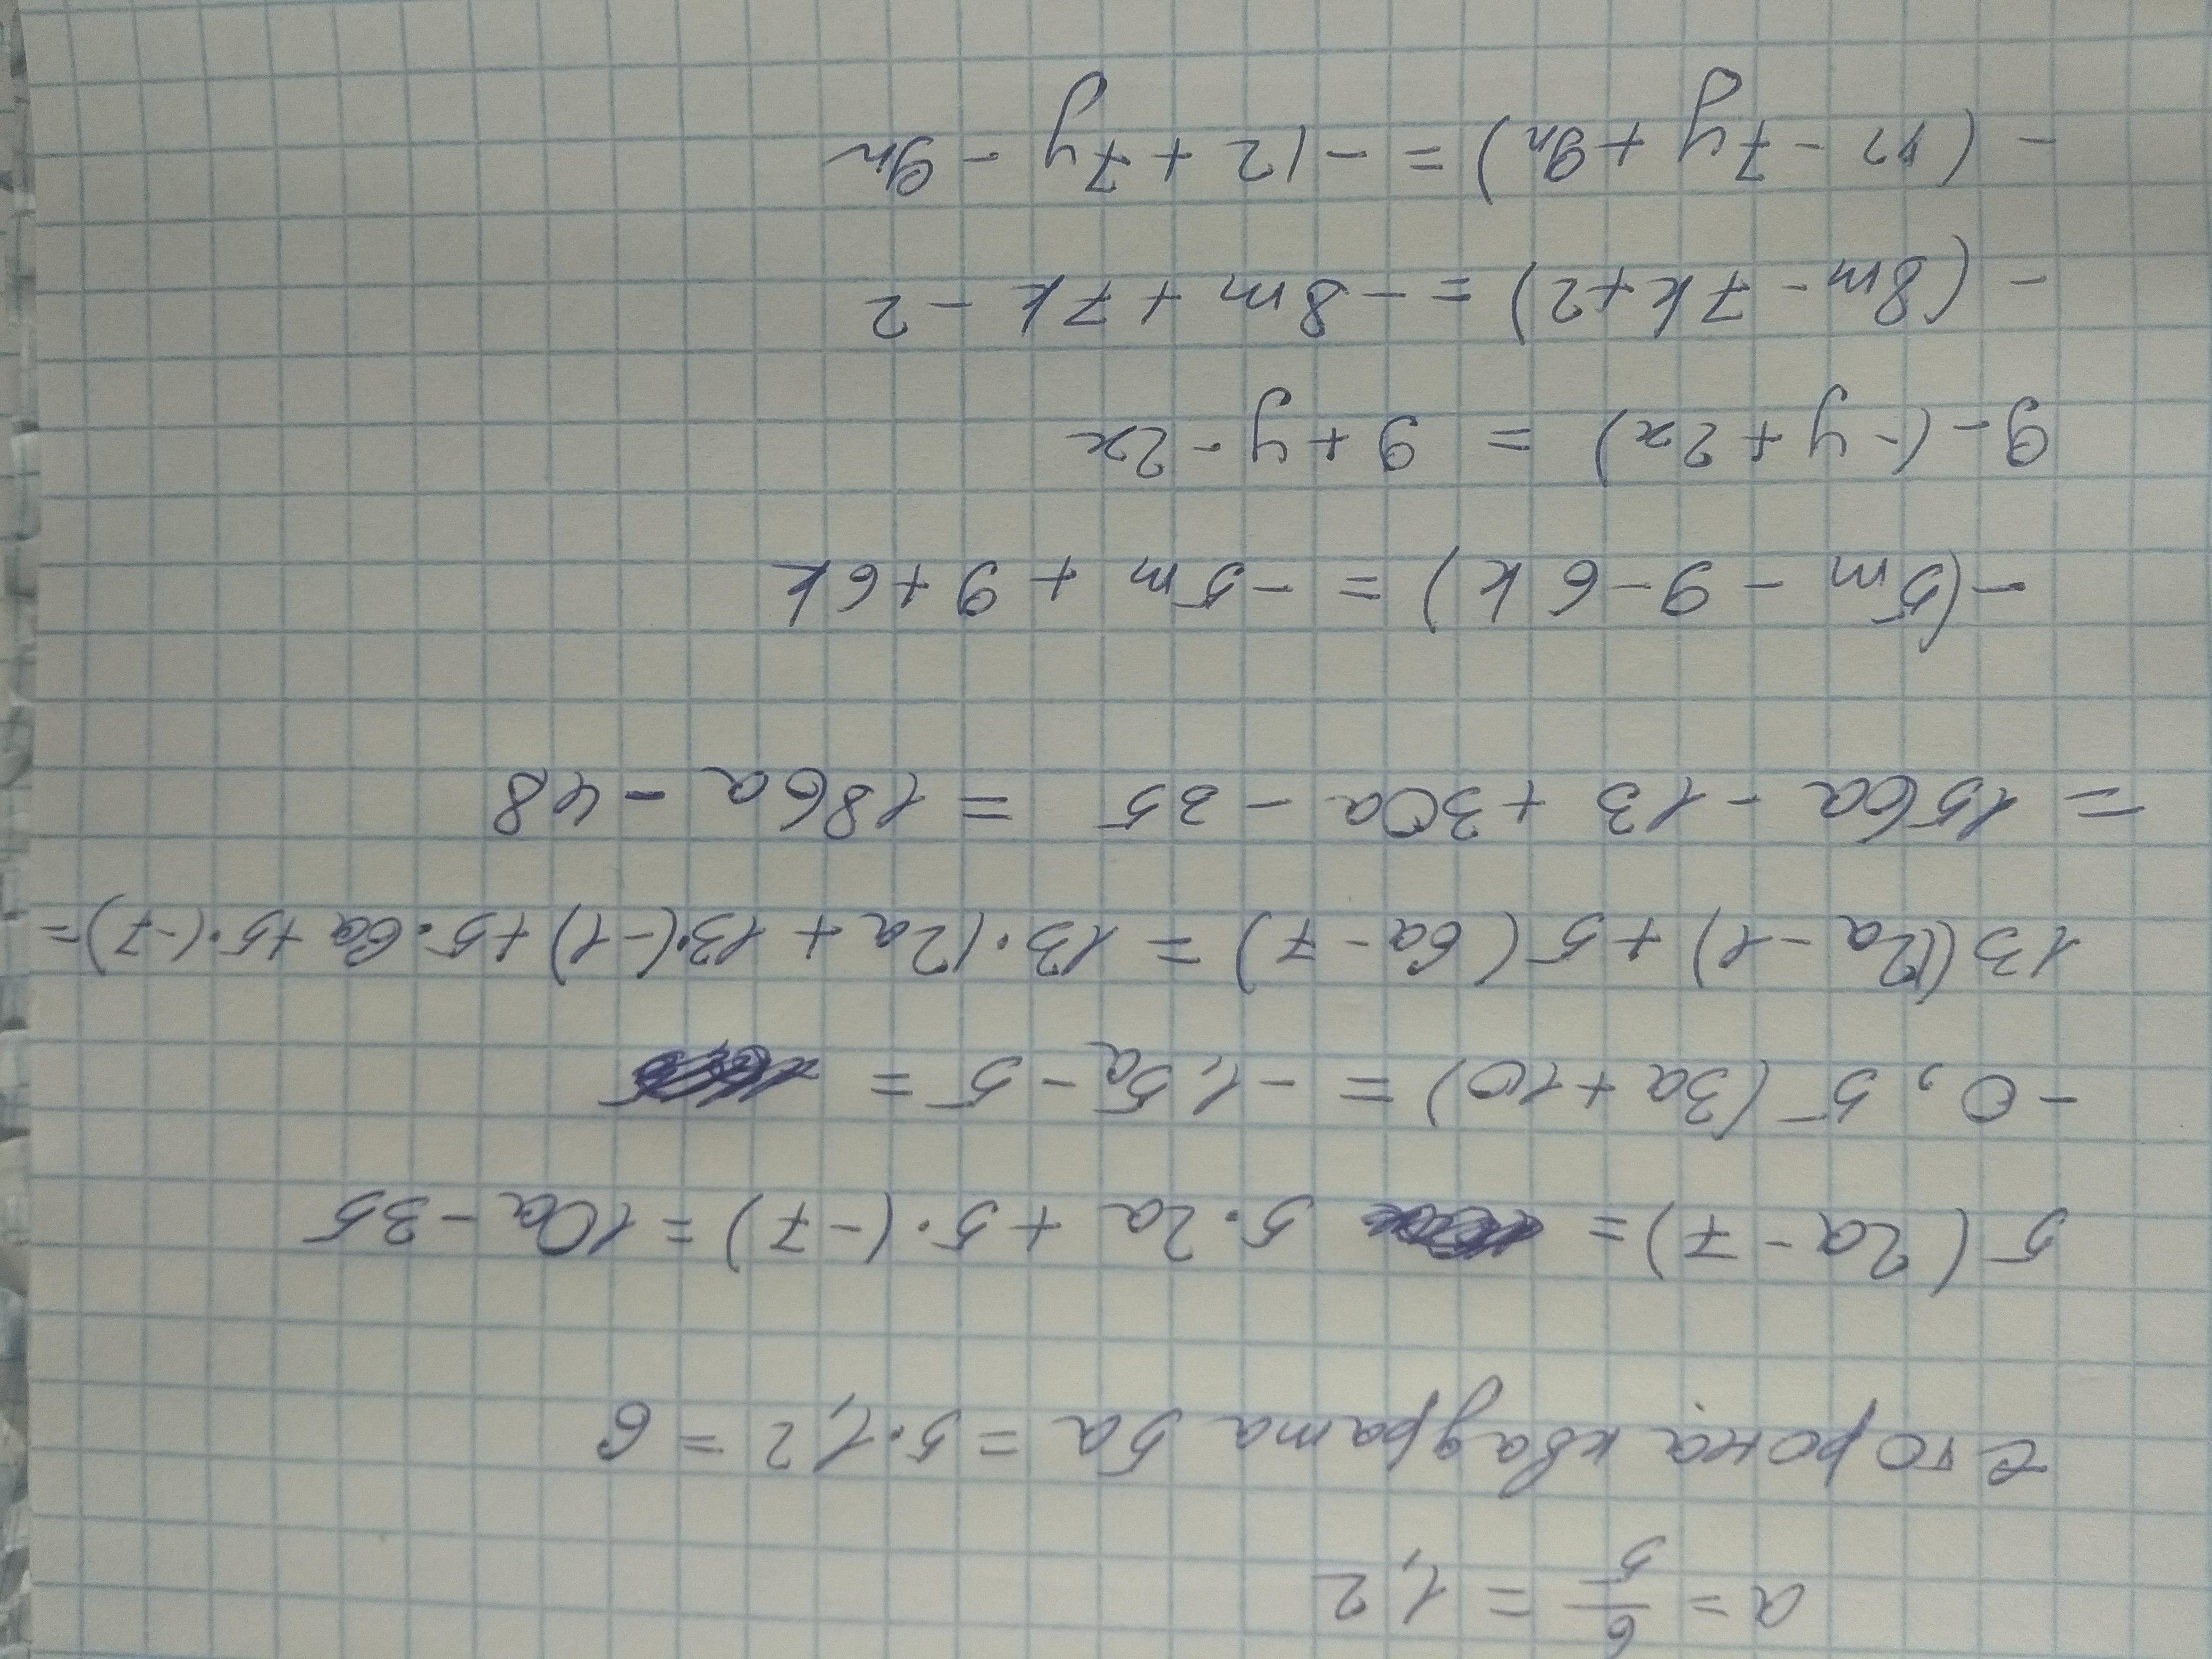 a = 6/5 = 1,2
сторона квадрата 5a = 5·1,2 = 6
5(2a-7)= 5·2a + 5·(-7)=10a-35
-0,5(3a+10) = -1,5a-5 =
13(12a-1)+5(6a-7) = 13·12a + 13·(-1)+5·6a+5·(-7)=
=156a - 13 +30a - 35 = 186a - 48
-(5m - 9 - 6k) = -5m + 9 + 6k
9-(-y + 2x) = 9 + y - 2x
-(8m - 7k+2) = -8m + 7k - 2
-(12 - 7y + 9n) = -12 + 7y - 9n